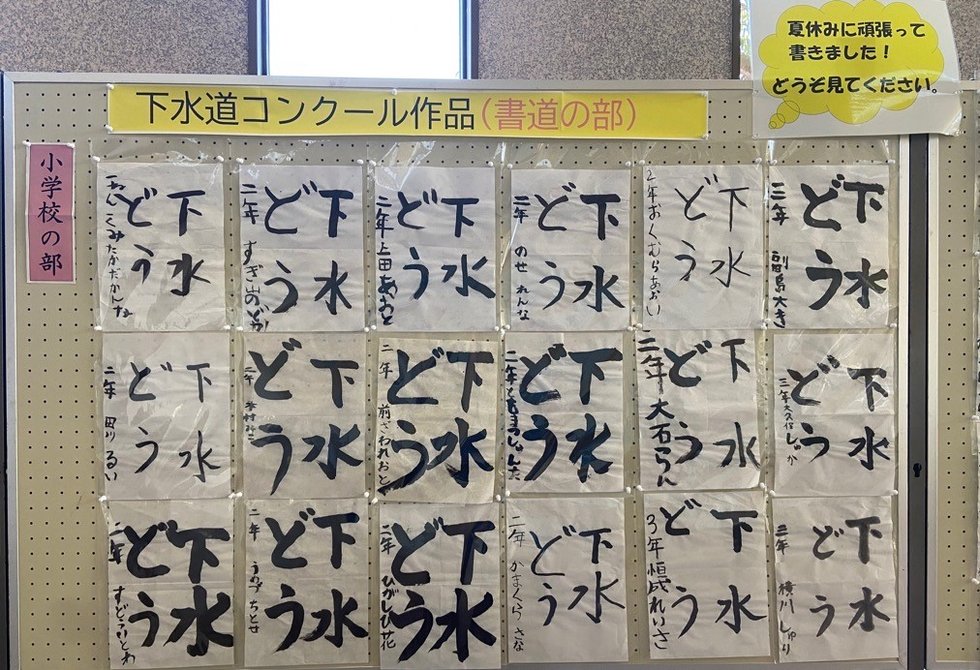 夏休みに頑張って
書きました！
どうぞ見てください。
下水道コンクール作品(書道の部)
小学校の部
下水
どう
下水
どう
二年 すぎ山のどか
下水
どう
二年 上田あおと
下水
どう
二年 のせ れんな
下水
どう
2年おくむらあおい
下水
どう
三年
下水
どう
二年 るい
下水
どう
二年
下水
どう
二年 前ざわれおと
下水
どう
二年
下水
どう
二年 大石らん
下水
どう
三年大久保しゅか
下水
どう
二年
下水
どう
二年 ちとせ
下水
どう
二年 ひがしび花
下水
どう
二年 かまくらさな
下水
どう
3年恒成れいさ
下水
どう
三年 横川 しゅり